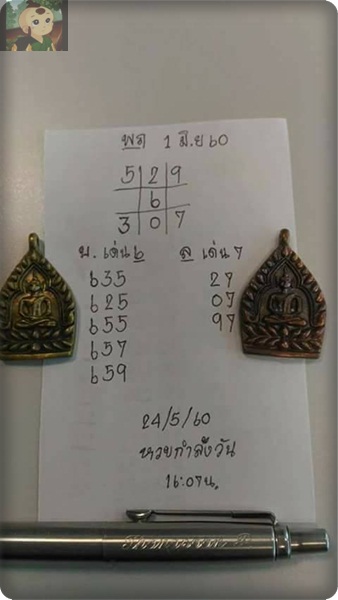 พฤ 1 มิ.ย 60
5 2 9
6
3 0 7
บ. เด่น ๖ ล เด่น 7
๖35 27
๖25 07
๖55 97
๖57
๖59
24/5/60
หวยกำลังวัน
16:07น.